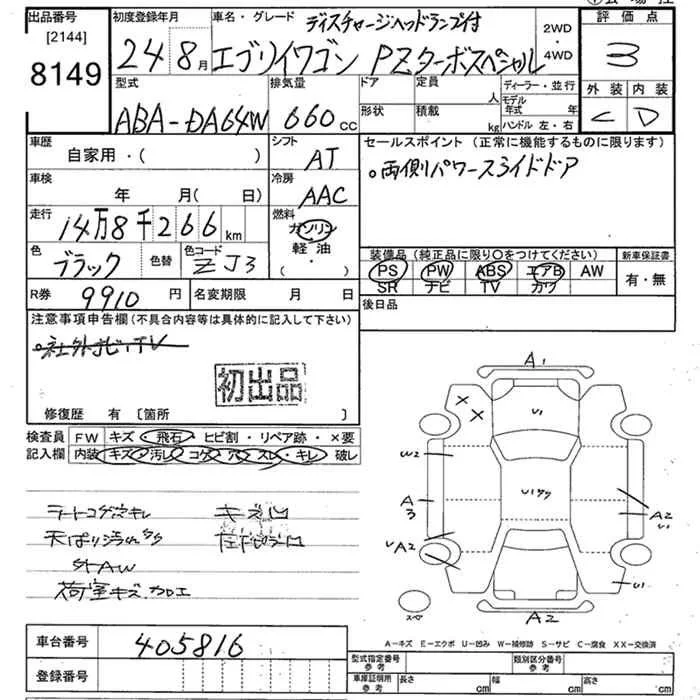 出品番号
[2144]
8149
初度登録年月
24 8月
車名・グレード
ディスチャージヘッドランプ付
エブリイワゴン PZターボスペシャル
2WD
・
4WD
評価点
3
外装 内装
C D
型式
ABA-DA64W
排気量
660cc
ドア
形状
定員
人
積載
kg
ディーラー・並行
モデル年式 年
ハンドル 左・右
車歴
自家用・( )
シフト
AT
車検
年 月(日)
冷房
AAC
走行
14万8千266km
燃料
ガソリン
軽・油
( ・ )
色
ブラック
色替
色コード
ZJ3
R券 9910円
名変期限 月 日
セールスポイント(正常に機能するものに限ります)
。両側パワースライドドア
装備品(純正品に限り○をつけてください)
PS PW ABS エアB AW
SR ナビ TV カワ
新車保証書
有・無
後日品
注意事項申告欄(不具合内容等は具体的に記入して下さい)
。社外ナビ、TV
初出品
修復歴 有 [箇所 ]
検査員記入欄
FW キズ・飛石・ヒビ割・リペア跡・×要
内装 キズ・汚レ・コゲ・穴・スレ・キレ・破レ
外AW
荷室キズ.加工
A1
U1
W2
A3
A2
U1
A2
U1
A2
スペア
A-キズ E-エクボ U-凹み W-補修跡 S-サビ C-腐食 XX-交換済
車台番号
405816
登録番号
型式指定番号
参考
類別区分番号
参考
車庫証明所
参考
長さ cm
幅 cm
高さ cm